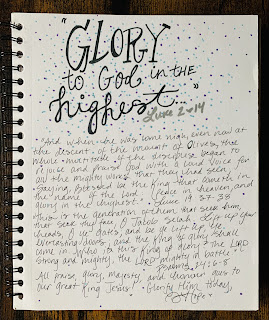 "GLORY
to God in the
highest..."
Luke 2:14
"And when he was come nigh, even now at
the descent of the mount of Olives, the
whole multitude of the disciples began to
rejoice and praise God with a loud voice for
all the mighty works that they had seen;
Saying, Blessed be the King that cometh in
the name of the Lord: peace in heaven, and
glory in the highest." Luke 19:37-38
"This is the generation of them that seek him,
that seek thy face, O Jacob. Selah. Lift up your
heads, O ye gates; and be ye lift up, ye
everlasting doors; and the King of glory shall
come in. Who is this King of glory? The LORD
strong and mighty, the LORD mighty in battle."
Psalms 24:6-8
All praise, glory, majesty, and honour due to
our great King Jesus! Glorify Him today,
Hope